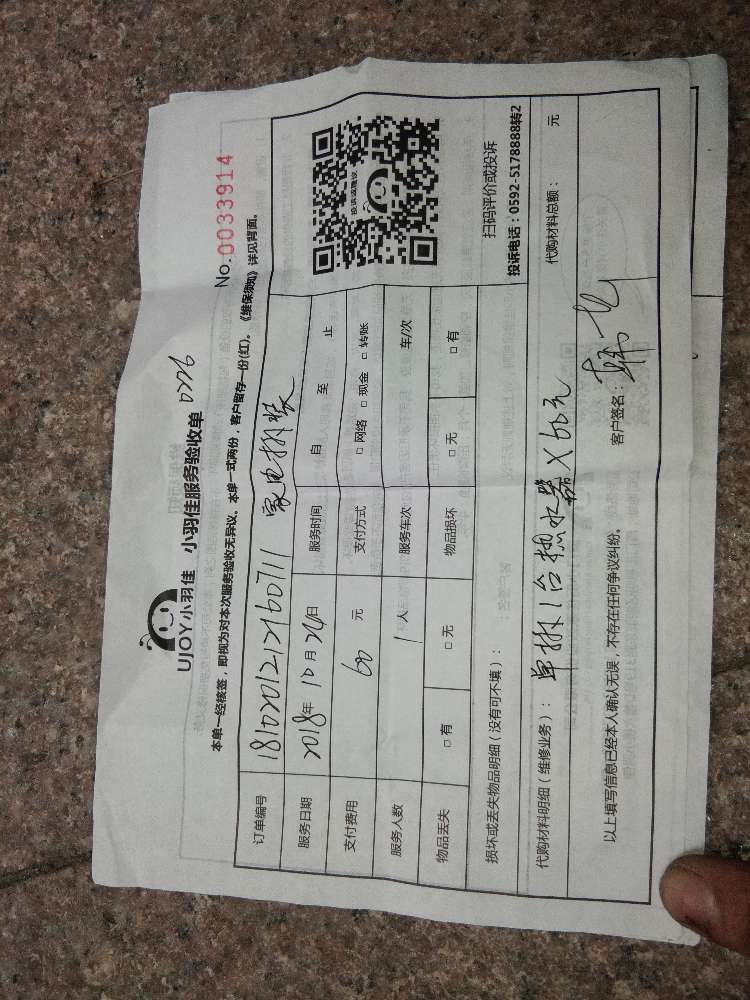 UJOY小羽佳 小羽佳服务验收单 0776
No.0033914
本单一经核签，即视为对本次服务验收无异议。本单一式两份，客户留存一份(红)。《维保须知》详见背面。
订单编号 181020121760711 家电拆装
服务日期 2018年 10月 24日 服务时间 自 至 止
支付费用 60 元 支付方式 □网络 □现金 □转账
服务人数 1 人 服务车次 车/次
物品丢失 □有 □无 物品损坏 □无 □有
投诉或建议
扫码评价或投诉
投诉电话：0592-5178888转2
损坏或丢失物品明细（没有可不填）：
代购材料明细（维修业务）：单拆1台热水器×60元
代购材料总额： 元
以上填写信息已经本人确认无误，不存在任何争议纠纷。 客户签名：